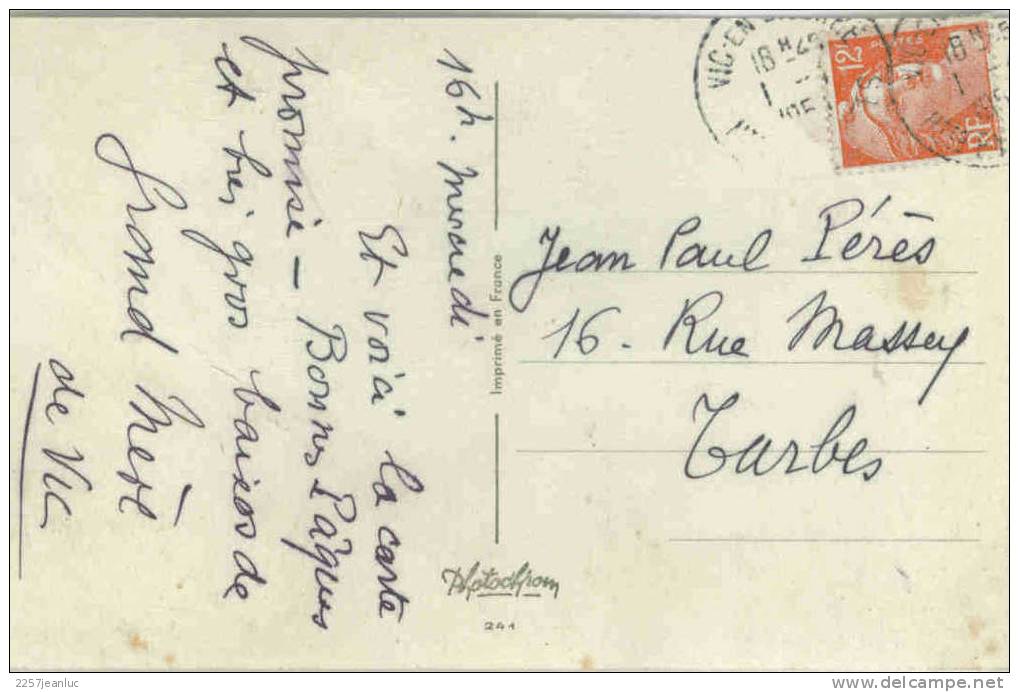 16h. Mercredi
Et voici la carte
promise – Bonnes Pâques
et bei gros baisers de
Grand Mère
de Vic
Imprimé en France
Photochrom
241
VIC-EN
18H
1
12F
POSTES
RF
Jean Paul Pérès
16. Rue Massey
Tarbes
2257jeanluc
www.delcampe.net